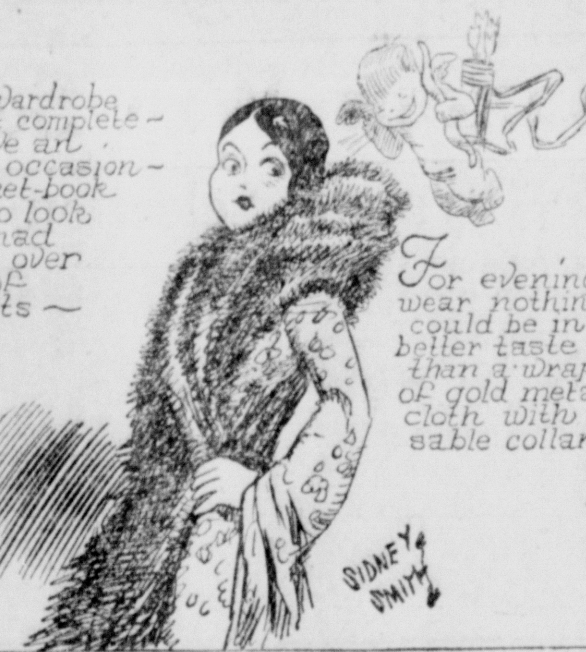 Wardrobe
complete~
an
occasion~
et-book
o look
had
over
of
ts ~
For evening
wear nothin
could be in
better taste
than a wrap
of gold meta
cloth with
sable collar
SIDNEY
SMITH